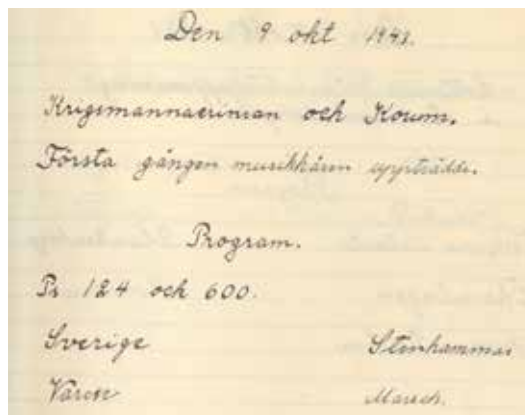 Den 9 okt 1943.
Krigsmannaerinran och Korum.
Första gången musikkåren uppträdde.
Program.
Ps 124 och 600.
Sverige Stenhammar
Marsch.